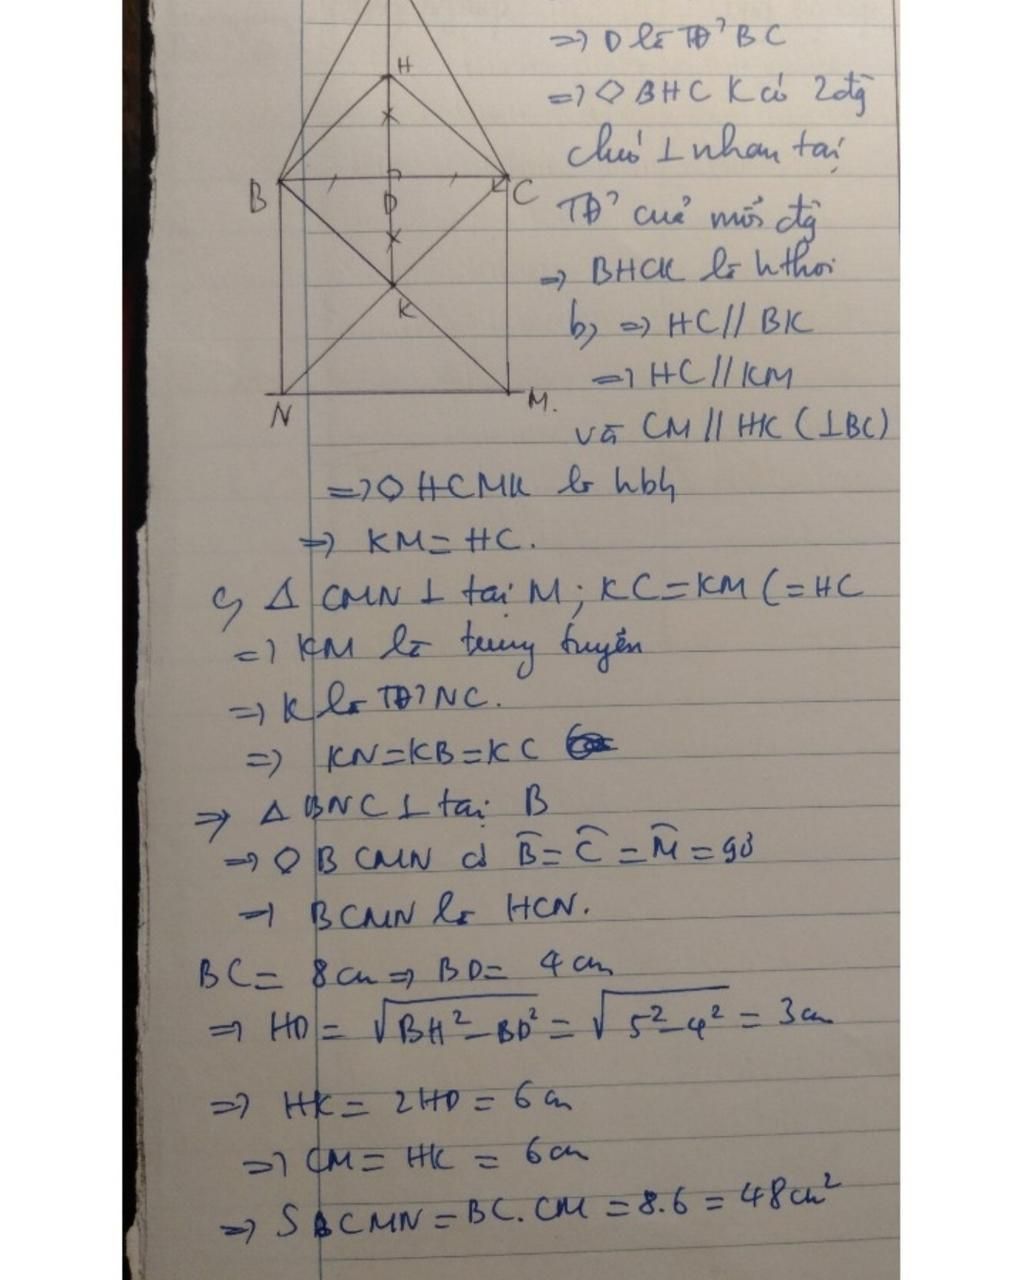 H
B
D
C
K
N
M.
=> D là TĐ' BC
=> ◇ BHCK có 2 đg
chéo ⊥ nhau tại
TĐ' của mỗi đg
=> BHCK là hthoi
b, => HC // BK
=> HC // KM
và CM // HK (⊥BC)
=> ◇ HCMK là hbh
=> KM = HC.
c, Δ CMN ⊥ tại M; KC = KM (= HC
=> KM là trung tuyến
=> K là TĐ' NC.
=> KN = KB = KC
=> Δ BNC ⊥ tại B
=> ◇ BCMN có B̂ = Ĉ = M̂ = 90
=> BCMN là HCN.
BC = 8cm => BD = 4cm
=> HD = √(BH² - BD²) = √(5² - 4²) = 3cm
=> HK = 2HD = 6cm
=> CM = HK = 6cm
=> S BCMN = BC.CM = 8.6 = 48cm²